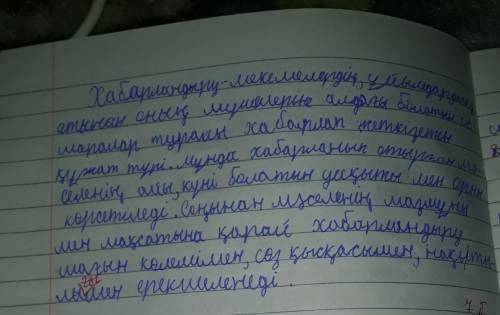 Хабарландыру-мекемелердің, ұйымдардың
атынан оның мүшелеріне алдағы болатын іс
шаралар туралы хабарлап жеткізетін
құжат түрі. мұнда хабарланып отырған мә
селенің айы, күні болатын уақыты мен орны
көрсетіледі. Соңынан мәселенің мазмұны
мен мақсатына қарай хабарландыру
шағын көлемімен, сөз қысқасымен, нақты-
лы мен ерекшеленеді.